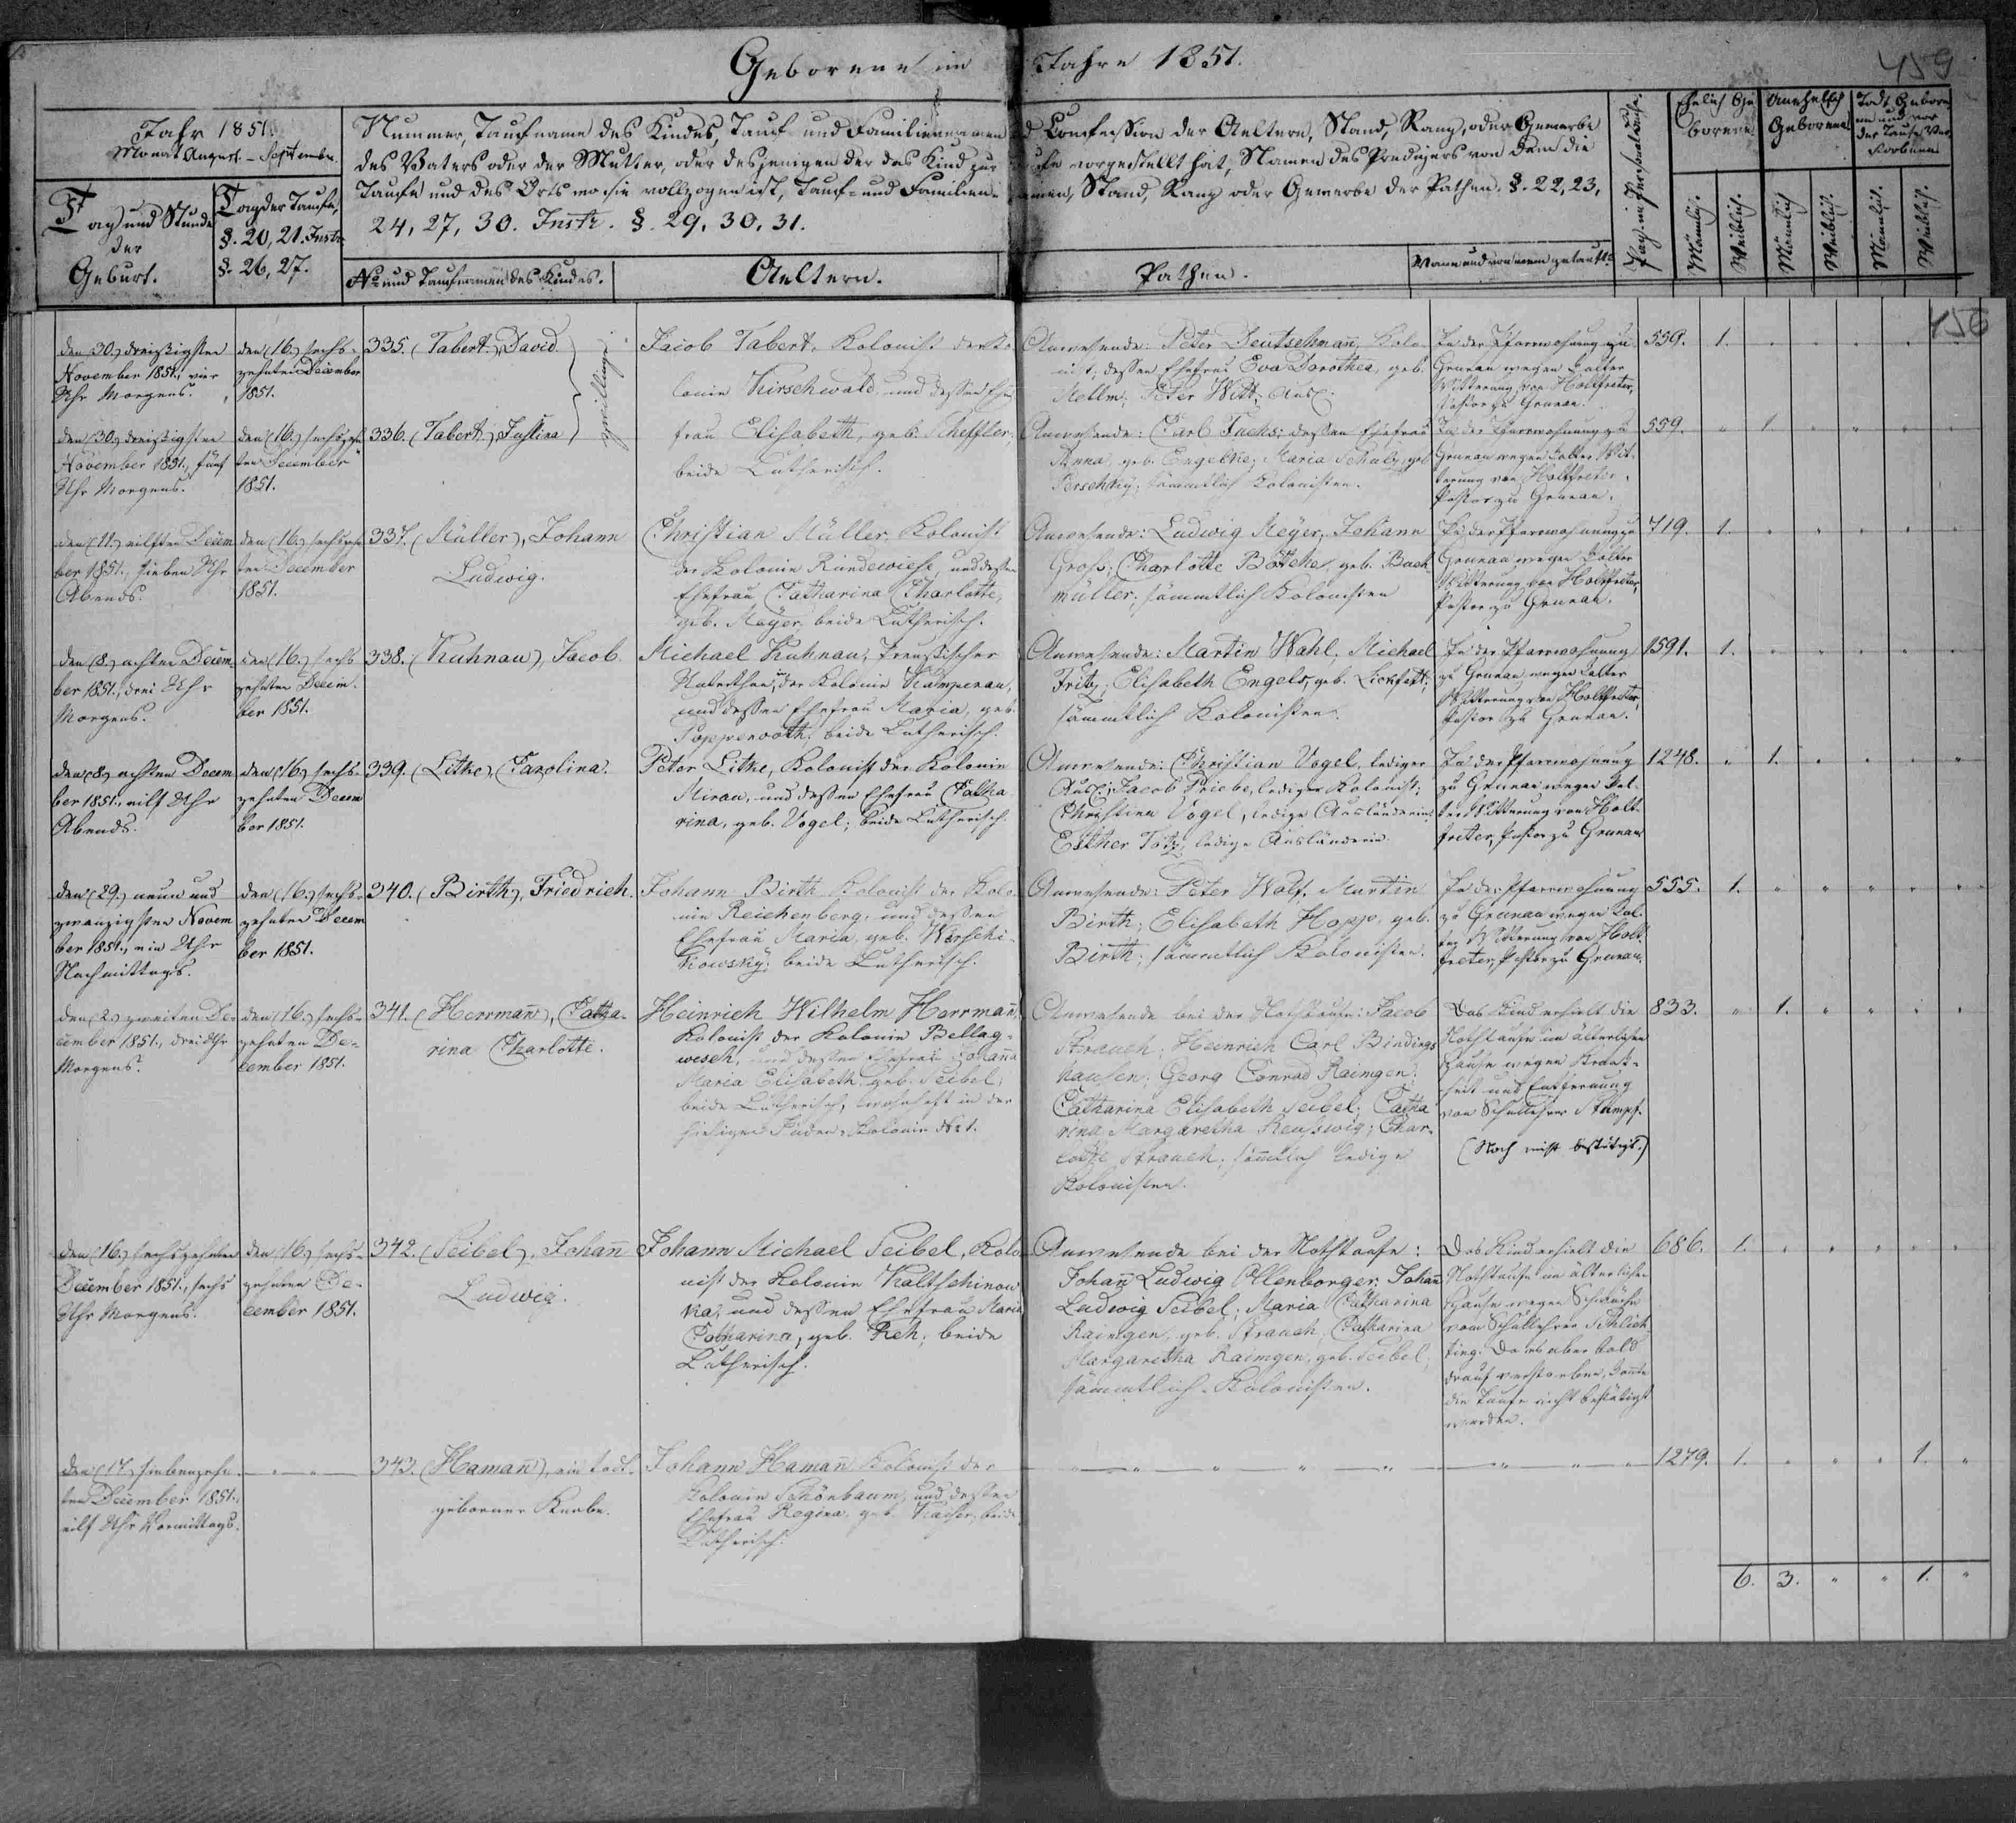 Geborene im Jahre 1851.
459
Jahr 1851.
Monat August - September.
Tag und Stunde
der
Geburt.
Tag der Taufe,
§. 20, 21. Instr.
§. 26, 27.
Nummer, Taufname des Kindes, Tauf- und Familiennamen und Confession der Aeltern, Stand, Rang, oder Gewerbe
des Vaters oder der Mutter, oder desjenigen der das Kind zur Taufe vorgestellt hat, Namen des Predigers von dem die
Taufe und des Orts wo sie vollzogen ist, Tauf- und Familiennamen, Stand, Rang oder Gewerbe der Pathen. §. 22, 23,
24, 27, 30. Instr. §. 29, 30, 31.
No. und Taufnamen des Kindes.
Aeltern.
Pathen.
Wann und von wem getauft?
Pag. im Personalbuche.
Ehelich Ge-
borene
Unehelich
Geborene
Todt Gebore-
ne und vor
der Taufe Ver-
storbene
Männlich.
Weiblich.
Männlich
Weiblich.
Männlich.
Weiblich.
456
den (30.) dreißigsten
November 1851, vier
Uhr Morgens.
den (16.) sechs-
zehnten December
1851.
335. (Tabert), David
Zwillinge
Jacob Tabert, Kolonist der Ko-
lonie Kirschwald, und dessen Ehe-
frau Elisabeth, geb. Scheffler;
beide Lutherisch.
Anwesende: Peter Deutschmañ, Kolo-
nist; dessen Ehefrau Eva Dorothea, geb.
Peter Witt, Ausl.
In der Pfarrwohnung zu
Grunau wegen kalter
Witterung von Holtfreter,
Pastor zu Grunau.
559. 1.
den (30.) dreißigsten
November 1851, fünf
Uhr Morgens.
den (16.) sechszehn-
ten December
1851.
336. (Tabert), Justina
Anwesende: Carl Fuchs; dessen Ehefrau
Anna, geb. Engelke; Maria Schulz, geb.
Perschky; sämmtlich Kolonisten.
In der Pfarrwohnung zu
Grunau wegen kalter Wit-
terung von Holtfreter,
Pastor zu Grunau.
559. " 1. " " " "
den (11.) eilften Decem-
ber 1851, sieben Uhr
Abends.
den (16.) sechszehn-
ten December
1851.
337. (Müller), Johann
Ludwig.
Christian Müller, Kolonist
der Kolonie Rundewiese, und dessen
Ehefrau Catharina Charlotte,
geb. Meyer; beide Lutherisch.
Anwesende: Ludwig Meyer; Johann
Groß; Charlotte Bötcher, geb. Bach-
müller; sämmtlich Kolonisten
In der Pfarrwohnung zu
Grunau wegen kalter
Witterung von Holtfreter,
Pastor zu Grunau.
719. 1. " " " " "
den (8.) achten Decem-
ber 1851, drei Uhr
Morgens.
den (16.) sechs-
zehnten Decem-
ber 1851.
338. (Kuhnau), Jacob.
Michael Kuhnau, Preußischer
Unterthan, der Kolonie Kampenau,
und dessen Ehefrau Maria, geb.
beide Lutherisch.
Anwesende: Martin Wahl; Michael
Fritz; Elisabeth Engels, geb. Lickfett;
sämmtlich Kolonisten.
In der Pfarrwohnung
zu Grunau wegen kalter
Witterung von Holtfreter,
Pastor zu Grunau.
1591. 1. " " " " "
den (8.) achten Decem-
ber 1851, eilf Uhr
Abends.
den (16.) sechs-
zehnten Decem-
ber 1851.
339. (Litke), Carolina.
Peter Litke, Kolonist der Kolonie
Mirau, und dessen Ehefrau Catha-
rina, geb. Vogel; beide Lutherisch.
Anwesende: Christian Vogel, lediger
Ausl.; Jacob Priebe, lediger Kolonist;
Christina Vogel, ledige Ausländerin;
Esther Totz, ledige Ausländerin.
In der Pfarrwohnung
zu Grunau wegen kal-
ter Witterung von Holt-
freter, Pastor zu Grunau
1248. " 1. " " " "
den (29.) neun und
zwanzigsten Novem-
ber 1851, ein Uhr
Nachmittags.
den (16.) sechs-
zehnten Decem-
ber 1851.
340. (Birth), Friedrich.
Johann Birth, Kolonist der Kolo-
nie Reichenberg, und dessen
Ehefrau Maria, geb. Warschi-
kowsky; beide Lutherisch.
Anwesende: Peter Wolf; Martin
Birth; Elisabeth Hopp, geb.
Birth; sämmtlich Kolonisten.
In der Pfarrwohnung
zu Grunau wegen kal-
ter Witterung von Holt-
freter, Pastor zu Grunau.
555. 1. " " " " "
den (2.) zweiten De-
cember 1851, drei Uhr
Morgens.
den (16.) sechs-
zehnten De-
cember 1851.
341. (Herrmañ), Catha-
rina Charlotte.
Heinrich Wilhelm Herrmañ,
Kolonist der Kolonie Bellag-
wesch, und dessen Ehefrau Johanna
Maria Elisabeth, geb. Seibel;
beide Lutherisch, wohnhaft in der
hiesigen Juden-Kolonie No 1.
Anwesende bei der Nothtaufe: Jacob
Strauch; Heinrich Carl Bindings-
hausen; Georg Conrad Raimgen;
Catharina Elisabeth Seibel; Catha-
rina Margaretha Reußwig; Char-
lotte Strauch; sämtlich ledige
Kolonisten.
Das Kind erhielt die
Nothtaufe im älterlichen
Hause wegen Krank-
heit und Entfernung
von Schullehrer Stumpf.
(Noch nicht bestätigt.)
833. " 1. " " " "
den (16.) sechszehnten
December 1851, sechs
Uhr Morgens.
den (16.) sechs-
zehnten De-
cember 1851.
342. (Seibel), Johañ
Ludwig.
Johann Michael Seibel, Kolo-
nist der Kolonie Kaltschinow-
ka, und dessen Ehefrau Maria
Catharina, geb. Reh; beide
Lutherisch.
Anwesende bei der Nothtaufe:
Johañ Ludwig Ollenborger; Johañ
Ludwig Seibel; Maria Catharina
Raimgen, geb. Strauch; Catharina
Margaretha Raimgen, geb. Seibel;
sämmtlich Kolonisten.
Das Kind erhielt die
Nothtaufe im älterlichen
Hause wegen Schwäche
vom Schullehrer Schlich-
ting. Da es aber bald
drauf verstorben, konnte
die Taufe nicht bestätigt
werden.
686. 1. " " " " "
den (17.) siebenzehn-
ten December 1851,
eilf Uhr Vormittags.
343. (Hamañ), ein todt-
geborner Knabe.
Johann Hamañ, Kolonist der
Kolonie Schönbaum, und dessen
Ehefrau Regina, geb. Kaiser; beide
Lutherisch.
1279. 1. " " " 1. "
6. 3. " " 1. "